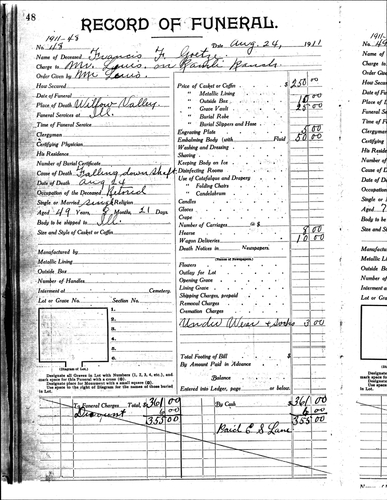 48
RECORD OF FUNERAL.
1911-48
No. 48 Date Aug. 24, 1911
Name of Deceased Francis F.
Charge to Mr. Louis, on Ranch.
Order Given by Mr Louis.
How Secured
Date of Funeral
Place of Death Willow Valley.
Funeral Services at Ill.
Time of Funeral Service
Clergyman
Certifying Physician
His Residence
Number of Burial Certificate
Cause of Death Falling down Shaft
Date of Death Aug
Occupation of the Deceased Retired
Single or Married single Religion
Aged 49 Years, 8 Months, 21 Days
Body to be shipped to Ill.
Size and Style of Casket or Coffin
Manufactured by
Metallic Lining
Outside Box
Number of Handles
Interment at Cemetery.
Lot or Grave No. Section No.
1.
2.
3.
4.
5.
6.
(Diagram of Lot.)
Designate all Graves in Lot with Numbers (1, 2, 3, 4, etc.), and
mark space for this Funeral with a cross
Designate place for Monument with a small square
Use space to the right of Diagram for the names of those buried
in Lot.
Price of Casket or Coffin $ 250 00
" Metallic Lining
" Outside Box 10 00
" Grave Vault 25 00
" Burial Robe
" Burial Slippers and Hose
Engraving Plate 5 00
Embalming Body (with Fluid 50 00
Washing and Dressing
Shaving
Keeping Body on Ice
Disinfecting Rooms
Use of Catafalque and Drapery
" Folding Chairs
" Candelabrum
Candles
Gloves
Crape
Number of Carriages @ $
Hearse 8 00
Wagon Deliveries 10 00
Death Notices in Newspapers.
(Names of Newspapers.)
Flowers
Outlay for Lot
Opening Grave
Lining Grave
Shipping Charges, prepaid
Removal Charges
Cremation Charges
Under Wear + Socks 3.00
Total Footing of Bill $
By Amount Paid in Advance
Balance
Entered into Ledger, page or below.
To Funeral Charges Total, $ 361 00
Discount 6 00
355 00
By Cash $ 361 00
6 00
355 00
Paid E S Lane